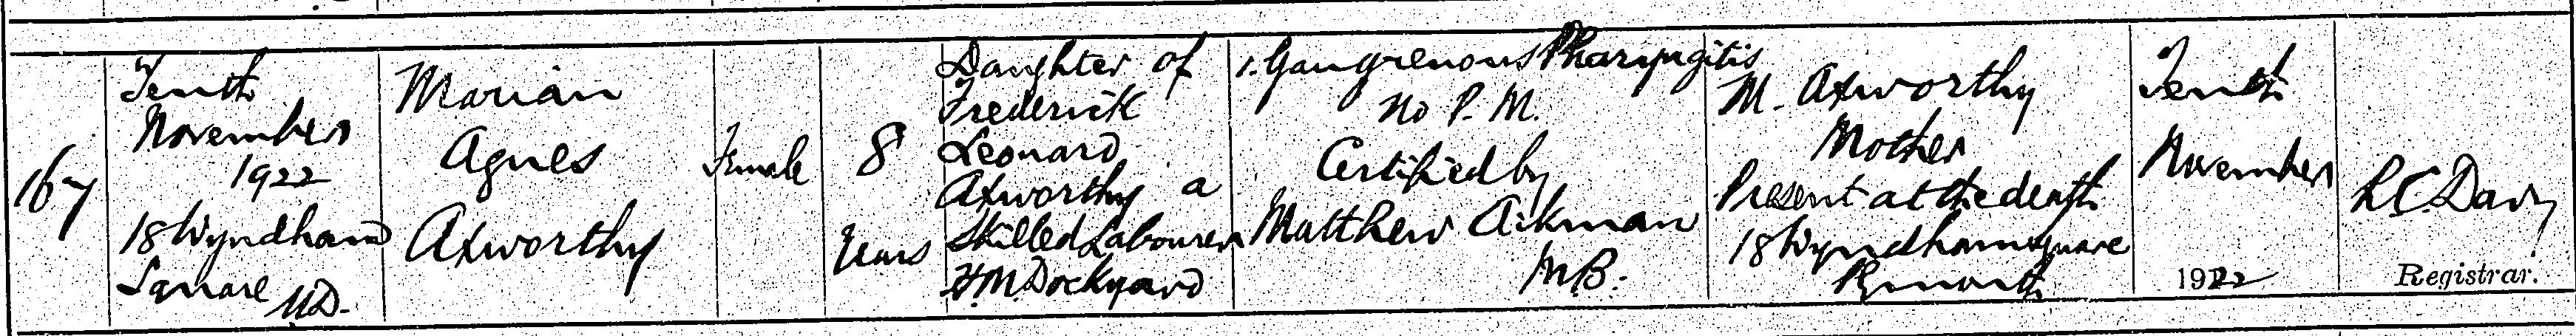 167
Tenth
November
1922
18 Wyndham
Square U.D.
Marian
Agnes
Axworthy
Female
8
Years
Daughter of
Frederick
Leonard
Axworthy a
Skilled Labourer
H.M. Dockyard
1. Gangrenous Pharyngitis
No P.M.
Certified by
Matthew Aikman
M.B.
M. Axworthy
Mother
Present at the death
18 Wyndham Square
Plymouth
Tenth
November
1922
R.C. Davy
Registrar.